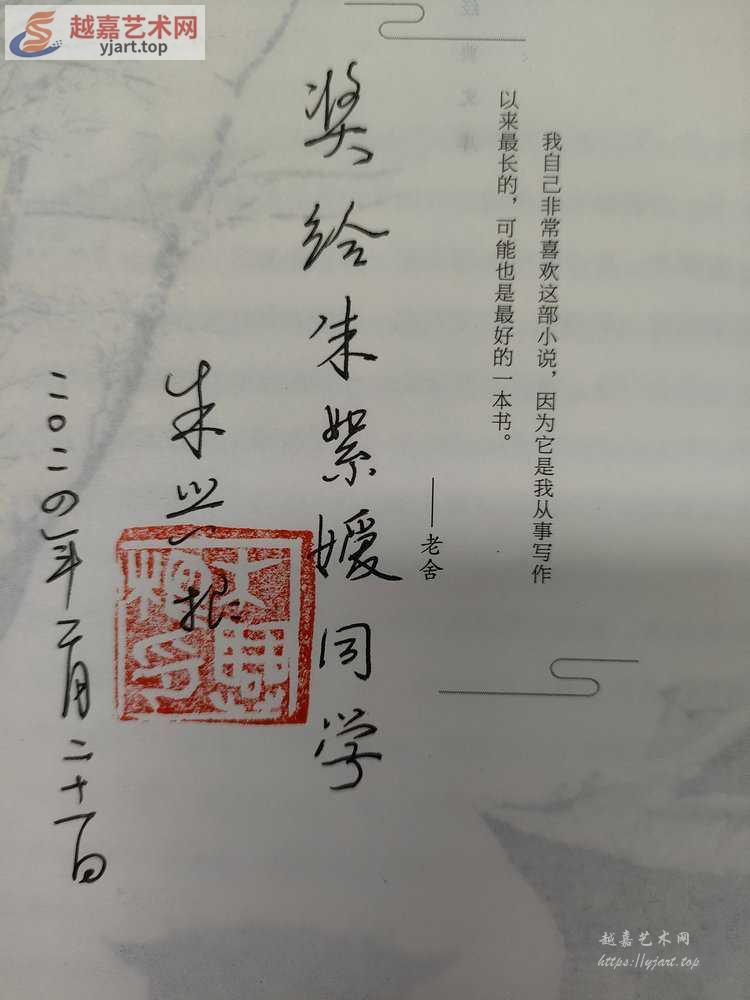 越嘉艺术网
yjart.top
我自己非常喜欢这部小说，因为它是我从事写作
以来最长的，可能也是最好的一本书。
——老舍
奖给朱絮媛同学
朱兴根
朱兴
根印
二〇二四年二月二十一日
越嘉艺术网
https://yjart.top